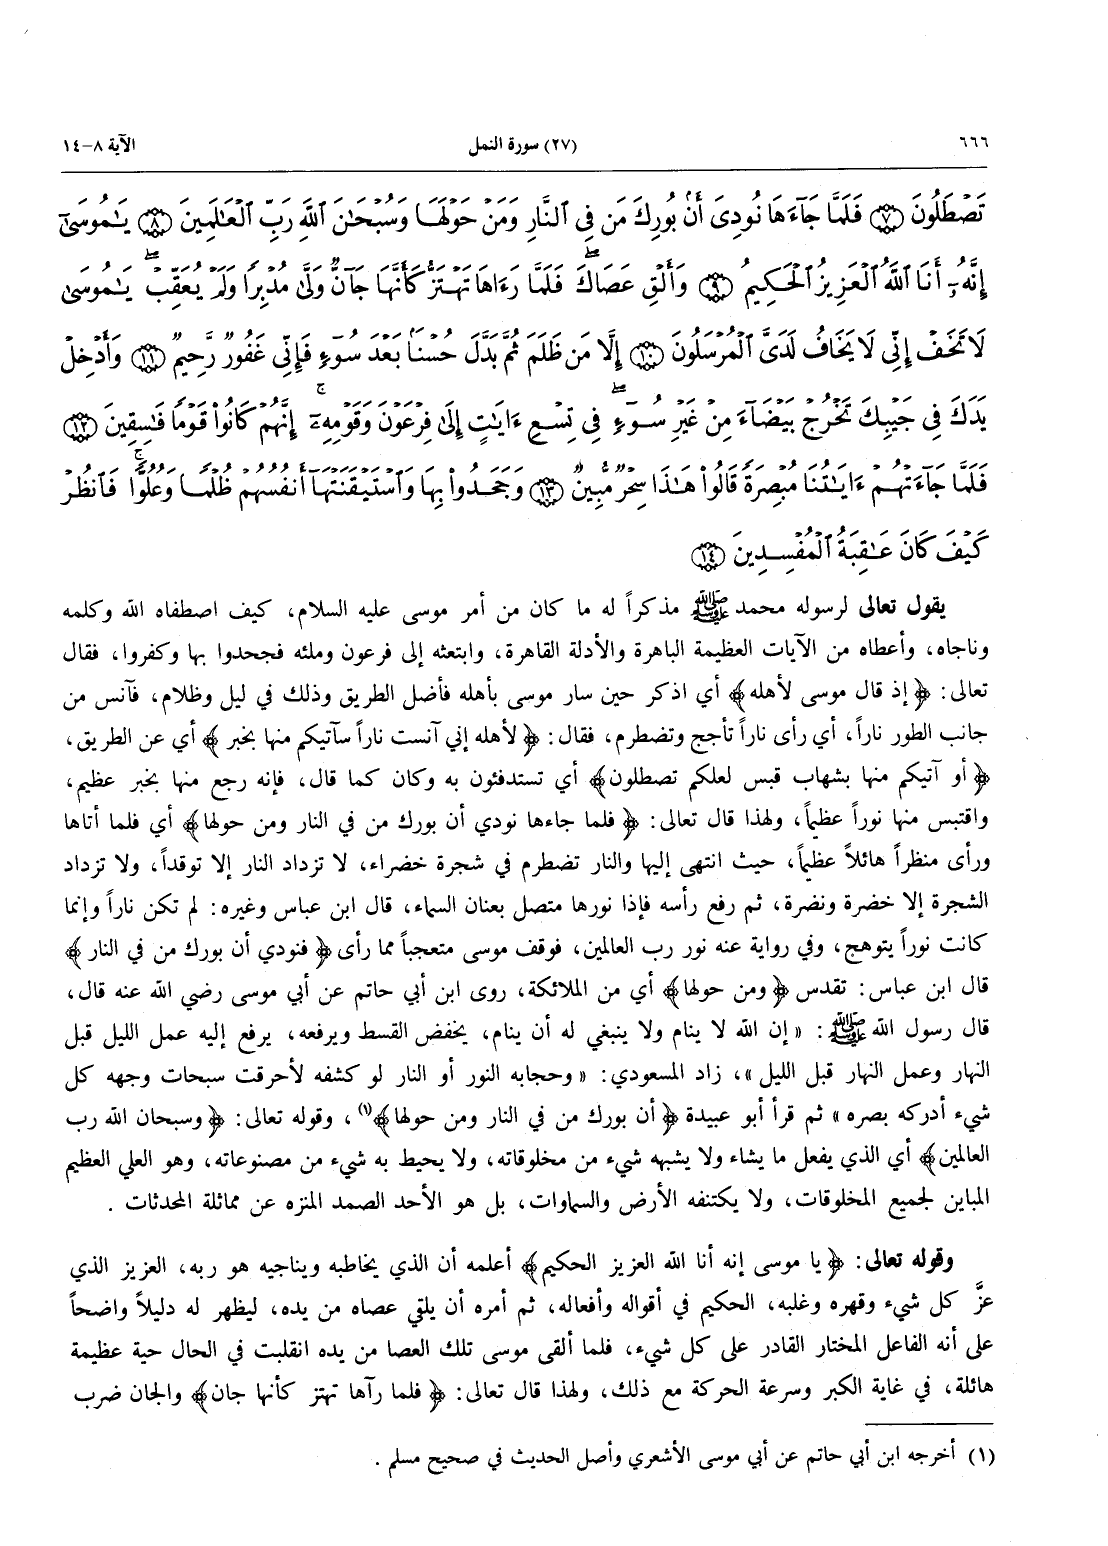 ٦٦٦ (٢٧) سورة النمل الآية ٨-١٤
تَصْطَلُونَ ﴿٧﴾ فَلَمَّا جَآءَهَا نُودِىَ أَنۢ بُورِكَ مَن فِى ٱلنَّارِ وَمَنْ حَوْلَهَا وَسُبْحَـٰنَ ٱللَّهِ رَبِّ ٱلْعَـٰلَمِينَ ﴿٨﴾ يَـٰمُوسَىٰٓ
إِنَّهُۥٓ أَنَا ٱللَّهُ ٱلْعَزِيزُ ٱلْحَكِيمُ ﴿٩﴾ وَأَلْقِ عَصَاكَ ۖ فَلَمَّا رَءَاهَا تَهْتَزُّ كَأَنَّهَا جَآنٌّ وَلَّىٰ مُدْبِرًا وَلَمْ يُعَقِّبْ ۚ يَـٰمُوسَىٰ
لَا تَخَفْ إِنِّى لَا يَخَافُ لَدَىَّ ٱلْمُرْسَلُونَ ﴿١٠﴾ إِلَّا مَن ظَلَمَ ثُمَّ بَدَّلَ حُسْنًۢا بَعْدَ سُوٓءٍ فَإِنِّى غَفُورٌ رَّحِيمٌ ﴿١١﴾ وَأَدْخِلْ
يَدَكَ فِى جَيْبِكَ تَخْرُجْ بَيْضَآءَ مِنْ غَيْرِ سُوٓءٍ ۖ فِى تِسْعِ ءَايَـٰتٍ إِلَىٰ فِرْعَوْنَ وَقَوْمِهِۦٓ ۚ إِنَّهُمْ كَانُوا۟ قَوْمًا فَـٰسِقِينَ ﴿١٢﴾
فَلَمَّا جَآءَتْهُمْ ءَايَـٰتُنَا مُبْصِرَةً قَالُوا۟ هَـٰذَا سِحْرٌ مُّبِينٌ ﴿١٣﴾ وَجَحَدُوا۟ بِهَا وَٱسْتَيْقَنَتْهَآ أَنفُسُهُمْ ظُلْمًا وَعُلُوًّا ۚ فَٱنظُرْ
كَيْفَ كَانَ عَـٰقِبَةُ ٱلْمُفْسِدِينَ ﴿١٤﴾
يقول تعالى لرسوله محمد ﷺ مذكراً له ما كان من أمر موسى عليه السلام، كيف اصطفاه الله وكلمه
وناجاه، وأعطاه من الآيات العظيمة الباهرة والأدلة القاهرة، وابتعثه إلى فرعون وملئه فجحدوا بها وكفروا، فقال
تعالى: ﴿إذ قال موسى لأهله﴾ أي اذكر حين سار موسى بأهله فأضل الطريق وذلك في ليل وظلام، فآنس من
جانب الطور ناراً، أي رأى ناراً تأجج وتضطرم، فقال: ﴿لأهله إني آنست ناراً سآتيكم منها بخبر﴾ أي عن الطريق،
﴿أو آتيكم منها بشهاب قبس لعلكم تصطلون﴾ أي تستدفئون به وكان كما قال، فإنه رجع منها بخبر عظيم،
واقتبس منها نوراً عظيماً، ولهذا قال تعالى: ﴿فلما جاءها نودي أن بورك من في النار ومن حولها﴾ أي فلما أتاها
ورأى منظراً هائلاً عظيماً، حيث انتهى إليها والنار تضطرم في شجرة خضراء، لا تزداد النار إلا توقداً، ولا تزداد
الشجرة إلا خضرة ونضرة، ثم رفع رأسه فإذا نورها متصل بعنان السماء، قال ابن عباس وغيره: لم تكن ناراً وإنما
كانت نوراً يتوهج، وفي رواية عنه نور رب العالمين، فوقف موسى متعجباً مما رأى ﴿فنودي أن بورك من في النار﴾
قال ابن عباس: تقدس ﴿ومن حولها﴾ أي من الملائكة، روى ابن أبي حاتم عن أبي موسى رضي الله عنه قال،
قال رسول الله ﷺ: «إن الله لا ينام ولا ينبغي له أن ينام، يخفض القسط ويرفعه، يرفع إليه عمل الليل قبل
النهار وعمل النهار قبل الليل»، زاد المسعودي: «وحجابه النور أو النار لو كشفه لأحرقت سبحات وجهه كل
شيء أدركه بصره» ثم قرأ أبو عبيدة ﴿أن بورك من في النار ومن حولها﴾(١)، وقوله تعالى: ﴿وسبحان الله رب
العالمين﴾ أي الذي يفعل ما يشاء ولا يشبهه شيء من مخلوقاته، ولا يحيط به شيء من مصنوعاته، وهو العلي العظيم
المباين لجميع المخلوقات، ولا يكتنفه الأرض والسماوات، بل هو الأحد الصمد المنزه عن مماثلة المحدثات .
وقوله تعالى: ﴿يا موسى إنه أنا الله العزيز الحكيم﴾ أعلمه أن الذي يخاطبه ويناجيه هو ربه، العزيز الذي
عزَّ كل شيء وقهره وغلبه، الحكيم في أقواله وأفعاله، ثم أمره أن يلقي عصاه من يده، ليظهر له دليلاً واضحاً
على أنه الفاعل المختار القادر على كل شيء، فلما ألقى موسى تلك العصا من يده انقلبت في الحال حية عظيمة
هائلة، في غاية الكبر وسرعة الحركة مع ذلك، ولهذا قال تعالى: ﴿فلما رآها تهتز كأنها جان﴾ والجان ضرب
(١) أخرجه ابن أبي حاتم عن أبي موسى الأشعري وأصل الحديث في صحيح مسلم .